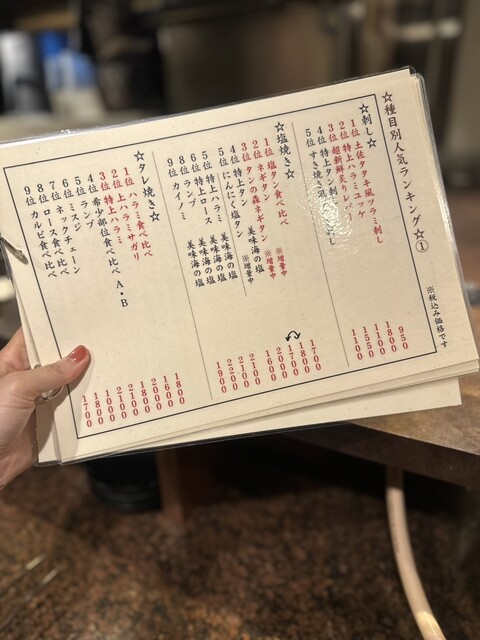 ☆種目別人気ランキング☆①
※税込み価格です
☆刺し☆
1位 土佐タタキ風ツラミ刺し 950
2位 特上ハラミユッケ 1800
3位 超新鮮炙りレバー 1100
4位 特上タン刺し 1550
5位 すき焼き風
☆塩焼き☆
1位 塩タン食べ比べ ※増量中 1700
2位 ネギタンタン ※増量中 1800
3位 タンの森ネギタン
4位 特上タン 美味海の塩
5位 にんにく塩タン ※増量中
5位 特上ハラミ 美味海の塩
特上ロース 美味海の塩
8位 ランプ 美味海の塩
9位 カイノミ 美味海の塩 1900
☆タレ焼き☆
1位 ハラミ食べ比べ 1800
2位 上ハラミサガリ
3位 特上ハラミ
4位 希少部位食べ比べ A・B
5位 ランプ
6位 ミスジ
7位 ネックチェーン
8位 ロース食べ比べ 1800
9位 カルビ食べ比べ 1700